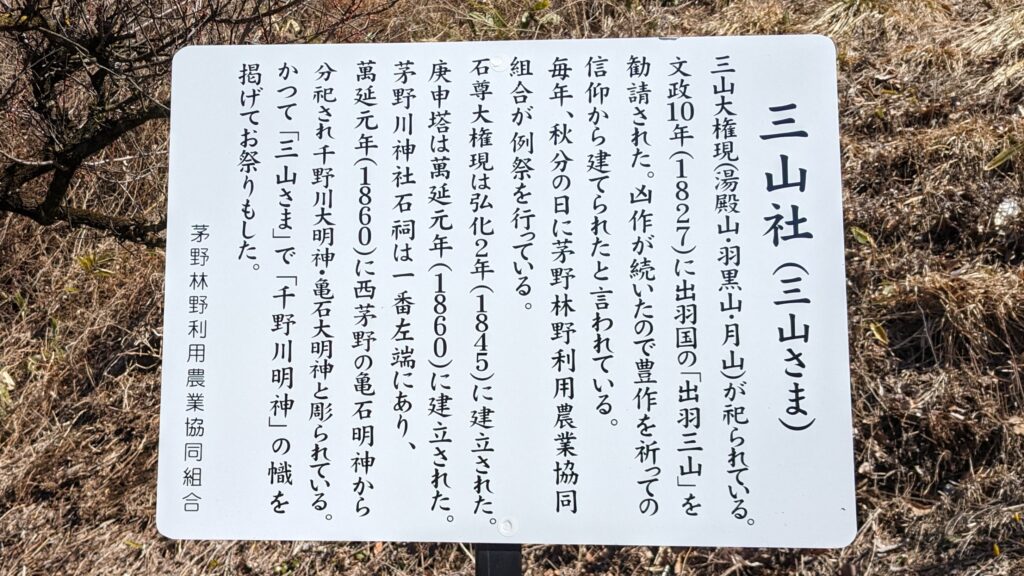 三山社(三山さま)
三山大権現(湯殿山・羽黒山・月山)が祀られている。
文政10年(1827)に出羽国の「出羽三山」を
勧請された。凶作が続いたので豊作を祈っての
信仰から建てられたと言われている。
毎年、秋分の日に茅野林野利用農業協同
組合が例祭を行っている。
石尊大権現は弘化2年(1845)に建立された。
庚申塔は萬延元年(1860)に建立された。
茅野川神社石祠は一番左端にあり、
萬延元年(1860)に西茅野の亀石明神から
分祀され千野川大明神・亀石大明神と彫られている。
かつて「三山さま」で「千野川明神」の幟を
掲げてお祭りもした。
茅野林野利用農業協同組合